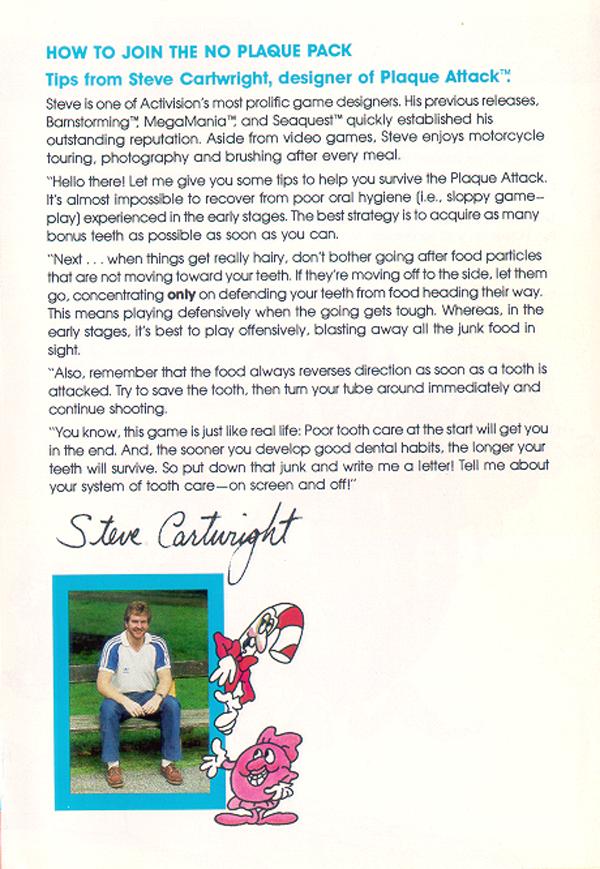 HOW TO JOIN THE NO PLAQUE PACK
Tips from Steve Cartwright, designer of Plaque Attack™.
Steve is one of Activision's most prolific game designers. His previous releases,
Barnstorming™, MegaMania™, and Seaquest™ quickly established his
outstanding reputation. Aside from video games, Steve enjoys motorcycle
touring, photography and brushing after every meal.
"Hello there! Let me give you some tips to help you survive the Plaque Attack.
It's almost impossible to recover from poor oral hygiene (i.e., sloppy game-
play) experienced in the early stages. The best strategy is to acquire as many
bonus teeth as possible as soon as you can.
"Next . . . when things get really hairy, don't bother going after food particles
that are not moving toward your teeth. If they're moving off to the side, let them
go, concentrating only on defending your teeth from food heading their way.
This means playing defensively when the going gets tough. Whereas, in the
early stages, it's best to play offensively, blasting away all the junk food in
sight.
"Also, remember that the food always reverses direction as soon as a tooth is
attacked. Try to save the tooth, then turn your tube around immediately and
continue shooting.
"You know, this game is just like real life: Poor tooth care at the start will get you
in the end. And, the sooner you develop good dental habits, the longer your
teeth will survive. So put down that junk and write me a letter! Tell me about
your system of tooth care—on screen and off!"
Steve Cartwright